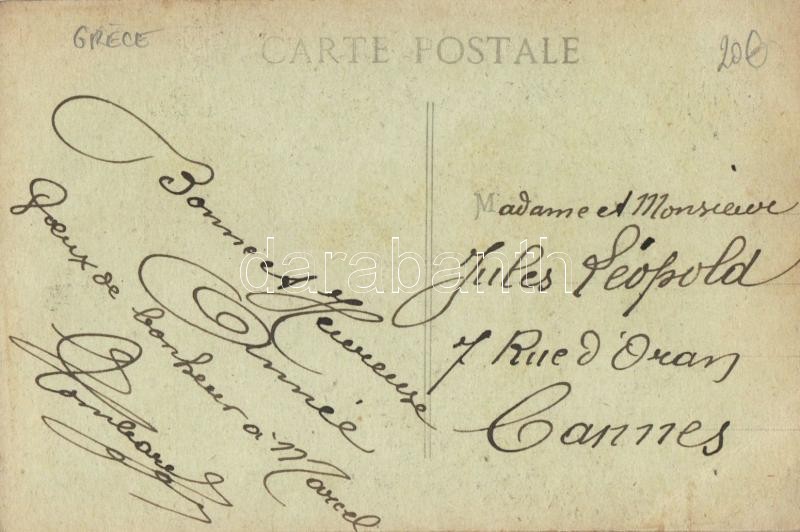 GRÈCE
CARTE POSTALE
20€
Bonne et Heureuse
Année
Vœux de bonheur à Marcel
Madame et Monsieur
Jules Léopold
7 Rue d'Oran
Cannes
darabanth